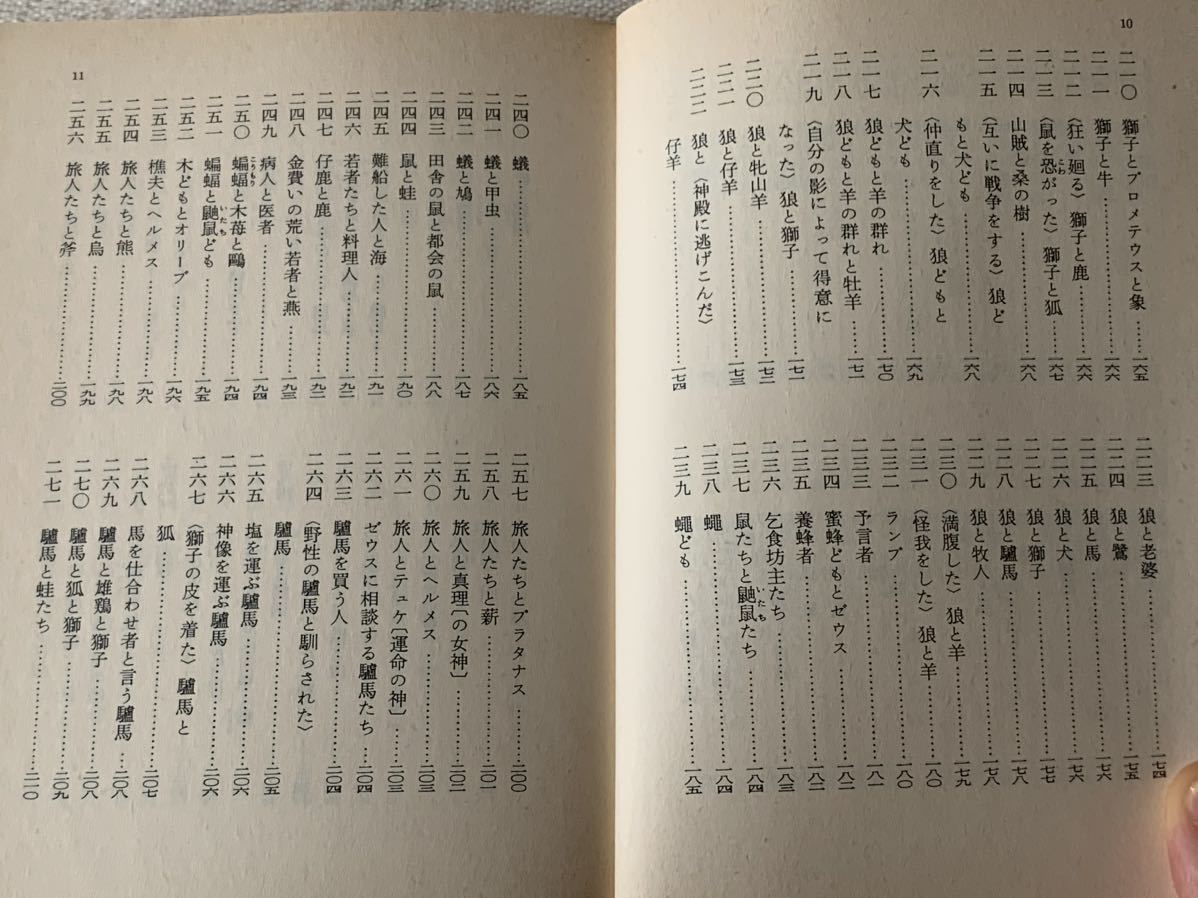 10
二一〇 獅子とプロメテウスと象……一六五
二一一 獅子と牛……一六六
二一二 〈狂い廻る〉獅子と鹿……一六六
二一三 〈鼠を恐がった〉獅子と狐……一六七
二一四 山賊と桑の樹……一六八
二一五 〈互いに戦争をする〉狼ど
もと犬ども……一六八
二一六 〈仲直りをした〉狼どもと
犬ども……一六九
二一七 狼どもと羊の群れ……一七〇
二一八 狼どもと羊の群れと牡羊……一七一
二一九 〈自分の影によって得意に
なった〉狼と獅子……一七一
二二〇 狼と牝山羊……一七二
二二一 狼と仔羊……一七三
二二二 狼と〈神殿に逃げこんだ〉
仔羊……一七四
二二三 狼と老婆……一七四
二二四 狼と鷺……一七五
二二五 狼と馬……一七六
二二六 狼と犬……一七六
二二七 狼と獅子……一七七
二二八 狼と驢馬……一七八
二二九 狼と牧人……一七八
二三〇 〈満腹した〉狼と羊……一七九
二三一 〈怪我をした〉狼と羊……一八〇
二三二 ランプ……一八〇
二三三 予言者……一八一
二三四 蜜蜂どもとゼウス……一八一
二三五 養蜂者……一八二
二三六 乞食坊主たち……一八三
二三七 鼠たちと鼬鼠たち……一八四
二三八 蠅……一八四
二三九 蠅ども……一八五
11
二四〇 蟻……一八五
二四一 蟻と甲虫……一八六
二四二 蟻と鳩……一八七
二四三 田舎の鼠と都会の鼠……一八八
二四四 鼠と蛙……一九〇
二四五 難船した人と海……一九一
二四六 若者たちと料理人……一九一
二四七 仔鹿と鹿……一九二
二四八 金費いの荒い若者と燕……一九三
二四九 病人と医者……一九四
二五〇 蝙蝠と木苺と鷗……一九四
二五一 蝙蝠と鼬鼠ども……一九五
二五二 木どもとオリーブ……一九六
二五三 樵夫とヘルメス……一九八
二五四 旅人たちと熊……一九八
二五五 旅人たちと烏……一九九
二五六 旅人たちと斧……二〇〇
二五七 旅人たちとプラタナス……二〇〇
二五八 旅人たちと薪……二〇一
二五九 旅人と真理〔の女神〕……二〇二
二六〇 旅人とヘルメス……二〇三
二六一 旅人とテュケ〔運命の神〕……二〇三
二六二 ゼウスに相談する驢馬たち……二〇四
二六三 驢馬を買う人……二〇四
二六四 〈野性の驢馬と馴らされた〉
驢馬……二〇五
二六五 塩を運ぶ驢馬……二〇六
二六六 神像を運ぶ驢馬……二〇六
二六七 〈獅子の皮を着た〉驢馬と
狐……二〇七
二六八 馬を仕合わせ者と言う驢馬……二〇八
二六九 驢馬と雄鶏と獅子……二〇八
二七〇 驢馬と狐と獅子……二〇九
二七一 驢馬と蛙たち……二一〇